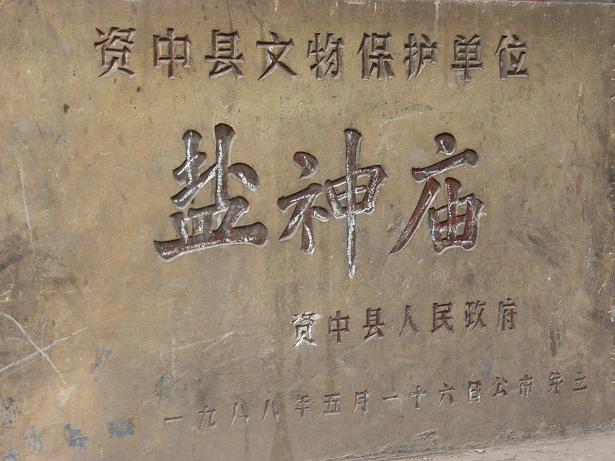 资中县文物保护单位
盐神庙
资中县人民政府
一九八八年五月一十六日公布并立